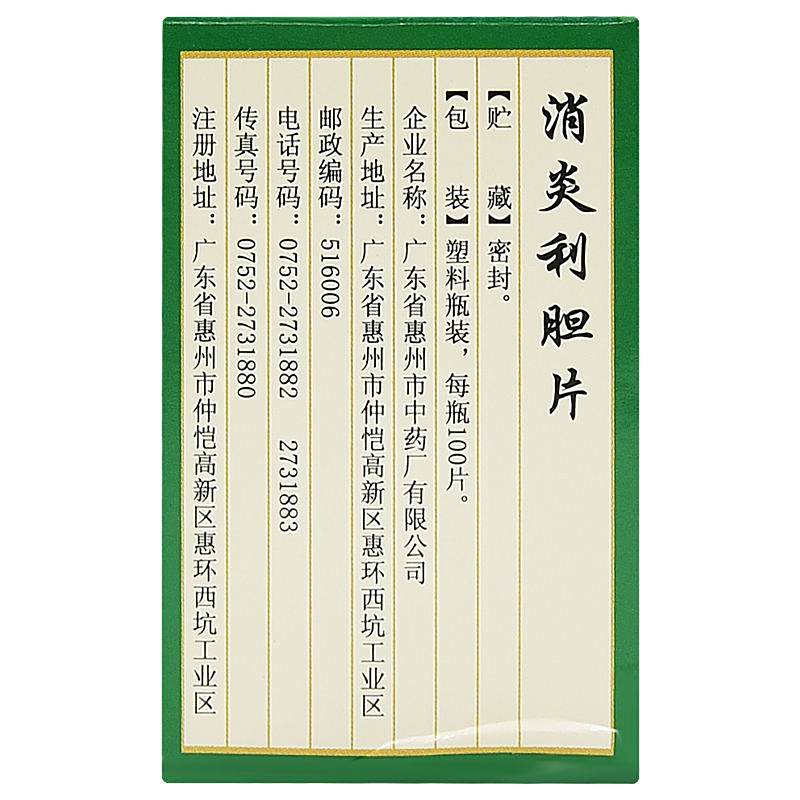 消炎利胆片
【贮 藏】密封。
【包 装】塑料瓶装，每瓶100片。
企业名称：广东省惠州市中药厂有限公司
生产地址：广东省惠州市仲恺高新区惠环西坑工业区
邮政编码：516006
电话号码：0752-2731882 2731883
传真号码：0752-2731880
注册地址：广东省惠州市仲恺高新区惠环西坑工业区